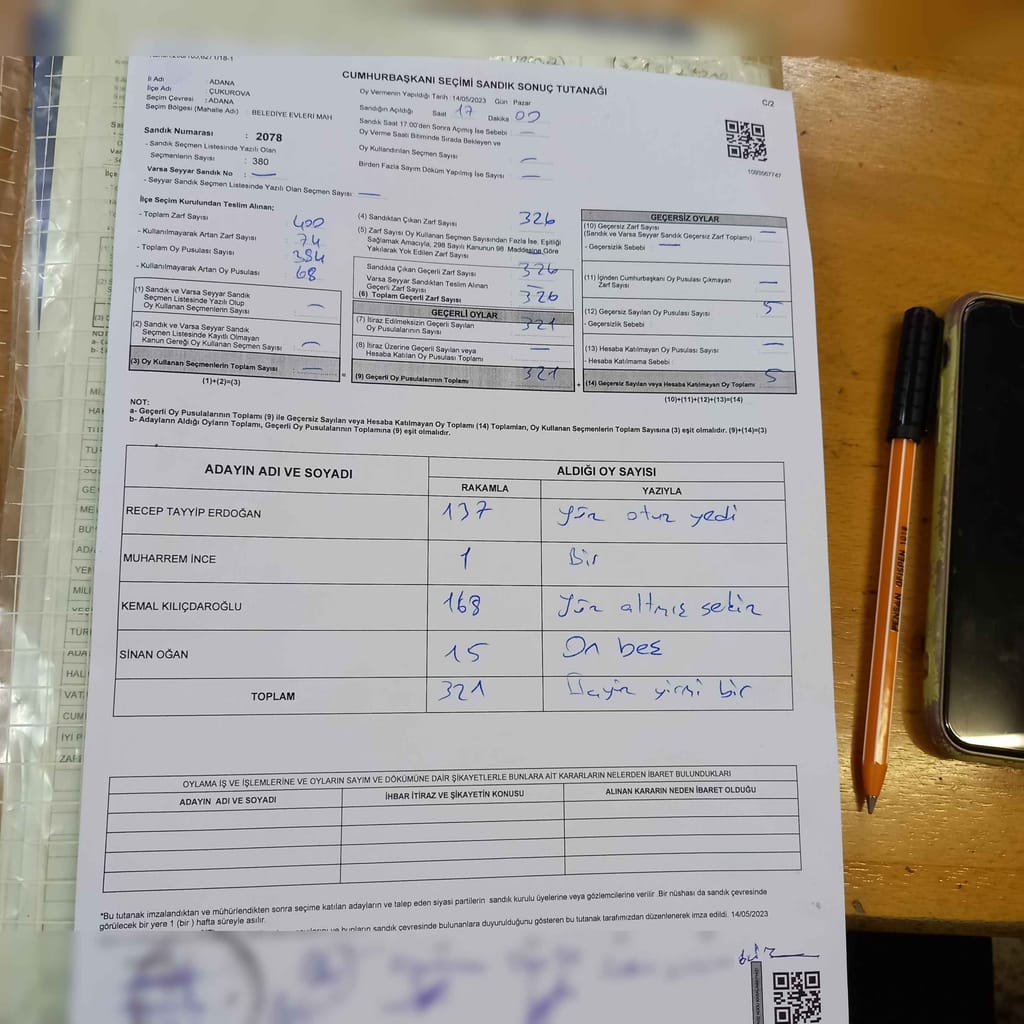 CUMHURBAŞKANI SEÇİMİ SANDIK SONUÇ TUTANAĞI
C/2
İl Adı : ADANA
İlçe Adı : ÇUKUROVA
Seçim Çevresi : ADANA
Seçim Bölgesi (Mahalle Adı) : BELEDİYE EVLERİ MAH
Sandık Numarası : 2078
- Sandık Seçmen Listesinde Yazılı Olan
Seçmenlerin Sayısı : 380
Varsa Seyyar Sandık No : —
- Seyyar Sandık Seçmen Listesinde Yazılı Olan Seçmen Sayısı : —
Oy Vermenin Yapıldığı Tarih : 14/05/2023 Gün Pazar
Sandığın Açıldığı Saat 17 Dakika 00
Sandık Saat 17.00'den Sonra Açımış İse Sebebi : —
Oy Verme Saati Bitiminde Sırada Bekleyen ve
Oy Kullandırılan Seçmen Sayısı : —
Birden Fazla Sayım Döküm Yapılmış İse Sayısı : —
1093567747
İlçe Seçim Kurulundan Teslim Alınan;
- Toplam Zarf Sayısı : 400
- Kullanılmayarak Artan Zarf Sayısı : 74
- Toplam Oy Pusulası Sayısı : 394
- Kullanılmayarak Artan Oy Pusulası : 68
(1) Sandık ve Varsa Seyyar Sandık
Seçmen Listesinde Yazılı Olup
Oy Kullanan Seçmenlerin Sayısı : —
(2) Sandık ve Varsa Seyyar Sandık
Seçmen Listesinde Kayıtlı Olmayan
Kanun Gereği Oy Kullanan Seçmen Sayısı : —
(3) Oy Kullanan Seçmenlerin Toplam Sayısı : —
(1)+(2)=(3)
(4) Sandıktan Çıkan Zarf Sayısı : 326
(5) Zarf Sayısı Oy Kullanan Seçmen Sayısından Fazla İse, Eşitliği
Sağlamak Amacıyla, 298 Sayılı Kanunun 98 Maddesine Göre
Yakılarak Yok Edilen Zarf Sayısı : —
Sandıkta Çıkan Geçerli Zarf Sayısı : 326
Varsa Seyyar Sandıktan Teslim Alınan
Geçerli Zarf Sayısı : —
(6) Toplam Geçerli Zarf Sayısı : 326
GEÇERLİ OYLAR
(7) İtiraz Edilmeksizin Geçerli Sayılan
Oy Pusulalarının Sayısı : 321
(8) İtiraz Üzerine Geçerli Sayılan veya
Hesaba Katılan Oy Pusulası Toplamı : —
(9) Geçerli Oy Pusulalarının Toplamı : 321
GEÇERSİZ OYLAR
(10) Geçersiz Zarf Sayısı : —
(Sandık ve Varsa Seyyar Sandık Geçersiz Zarf Toplamı)
- Geçersizlik Sebebi : —
(11) İçinden Cumhurbaşkanı Oy Pusulası Çıkmayan
Zarf Sayısı : —
(12) Geçersiz Sayılan Oy Pusulası Sayısı : 5
- Geçersizlik Sebebi :
(13) Hesaba Katılmayan Oy Pusulası Sayısı : —
- Hesaba Katılmama Sebebi :
(14) Geçersiz Sayılan veya Hesaba Katılmayan Oy Toplamı : 5
(10)+(11)+(12)+(13)=(14)
NOT:
a- Geçerli Oy Pusulalarının Toplamı (9) ile Geçersiz Sayılan veya Hesaba Katılmayan Oy Toplamı (14) Toplamları, Oy Kullanan Seçmenlerin Toplam Sayısına (3) eşit olmalıdır. (9)+(14)=(3)
b- Adayların Aldığı Oyların Toplamı, Geçerli Oy Pusulalarının Toplamına (9) eşit olmalıdır.
ADAYIN ADI VE SOYADI ALDIĞI OY SAYISI
RAKAMLA YAZIYLA
RECEP TAYYİP ERDOĞAN 137 Yüz otuz yedi
MUHARREM İNCE 1 Bir
KEMAL KILIÇDAROĞLU 168 Yüz altmış sekiz
SİNAN OĞAN 15 On beş
TOPLAM 321 yirmi bir
OYLAMA İŞ VE İŞLEMLERİNE VE OYLARIN SAYIM VE DÖKÜMÜNE DAİR ŞİKAYETLERLE BUNLARA AİT KARARLARIN NELERDEN İBARET BULUNDUKLARI
ADAYIN ADI VE SOYADI İHBAR İTİRAZ VE ŞİKAYETİN KONUSU ALINAN KARARIN NEDEN İBARET OLDUĞU
*Bu tutanak imzalandıktan ve mühürlendikten sonra seçime katılan adayların ve talep eden siyasi partilerin sandık kurulu üyelerine veya gözlemcilerine verilir. Bir nüshası da sandık çevresinde
görülecek bir yere 1 (bir) hafta süreyle asılır.
bunların sandık çevresinde bulunanlara duyurulduğunu gösteren bu tutanak tarafımızdan düzenlenerek imza edildi. 14/05/2023
PENSAN OFISPEN 1018